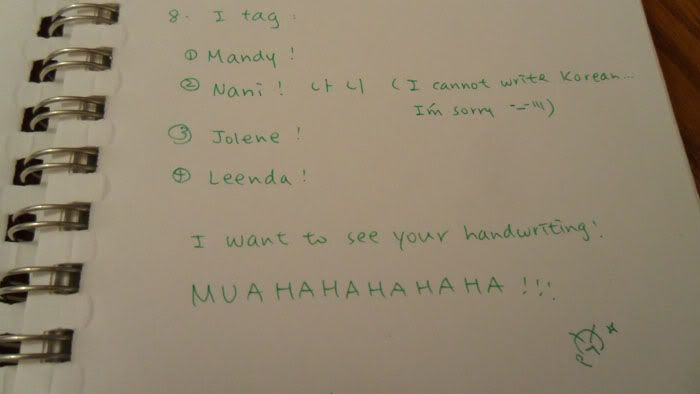 8. I tag :
① Mandy !
② Nani ! 나니 ( I cannot write Korean...
I'm sorry -_-''')
③ Jolene !
④ Leenda !
I want to see your handwriting!
MUAHAHAHAHAHA !!!